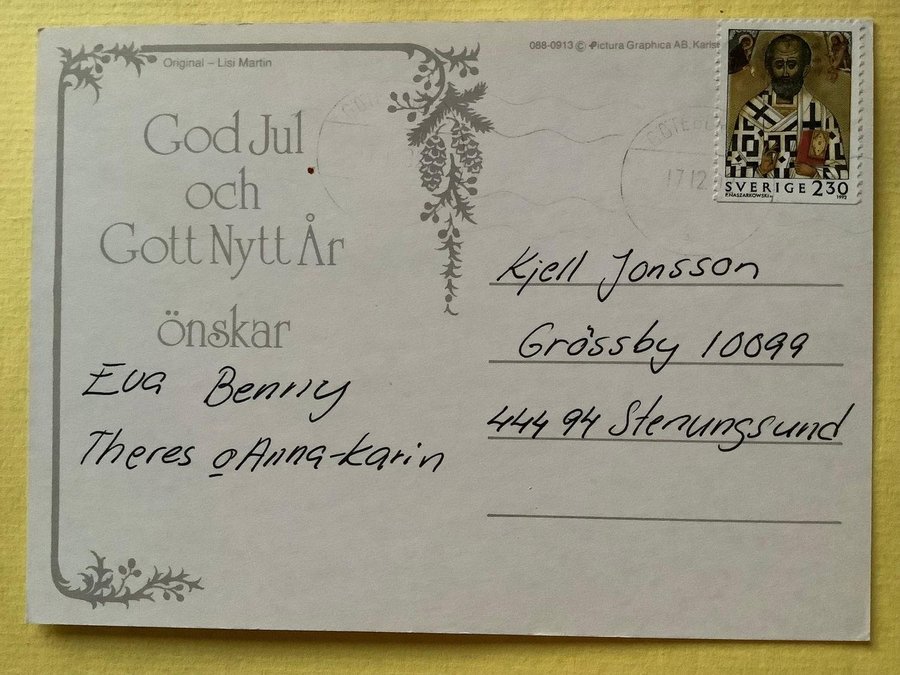 Original – Lisi Martin
088-0913 © Pictura Graphica AB,
God Jul
och
Gott Nytt År
önskar
Eva Benny
Theres o Anna-Karin
SVERIGE 230
P.NASZARKOWSKI 1992
17.12.
Kjell Jonsson
Grössby 10099
444 94 Stenungsund